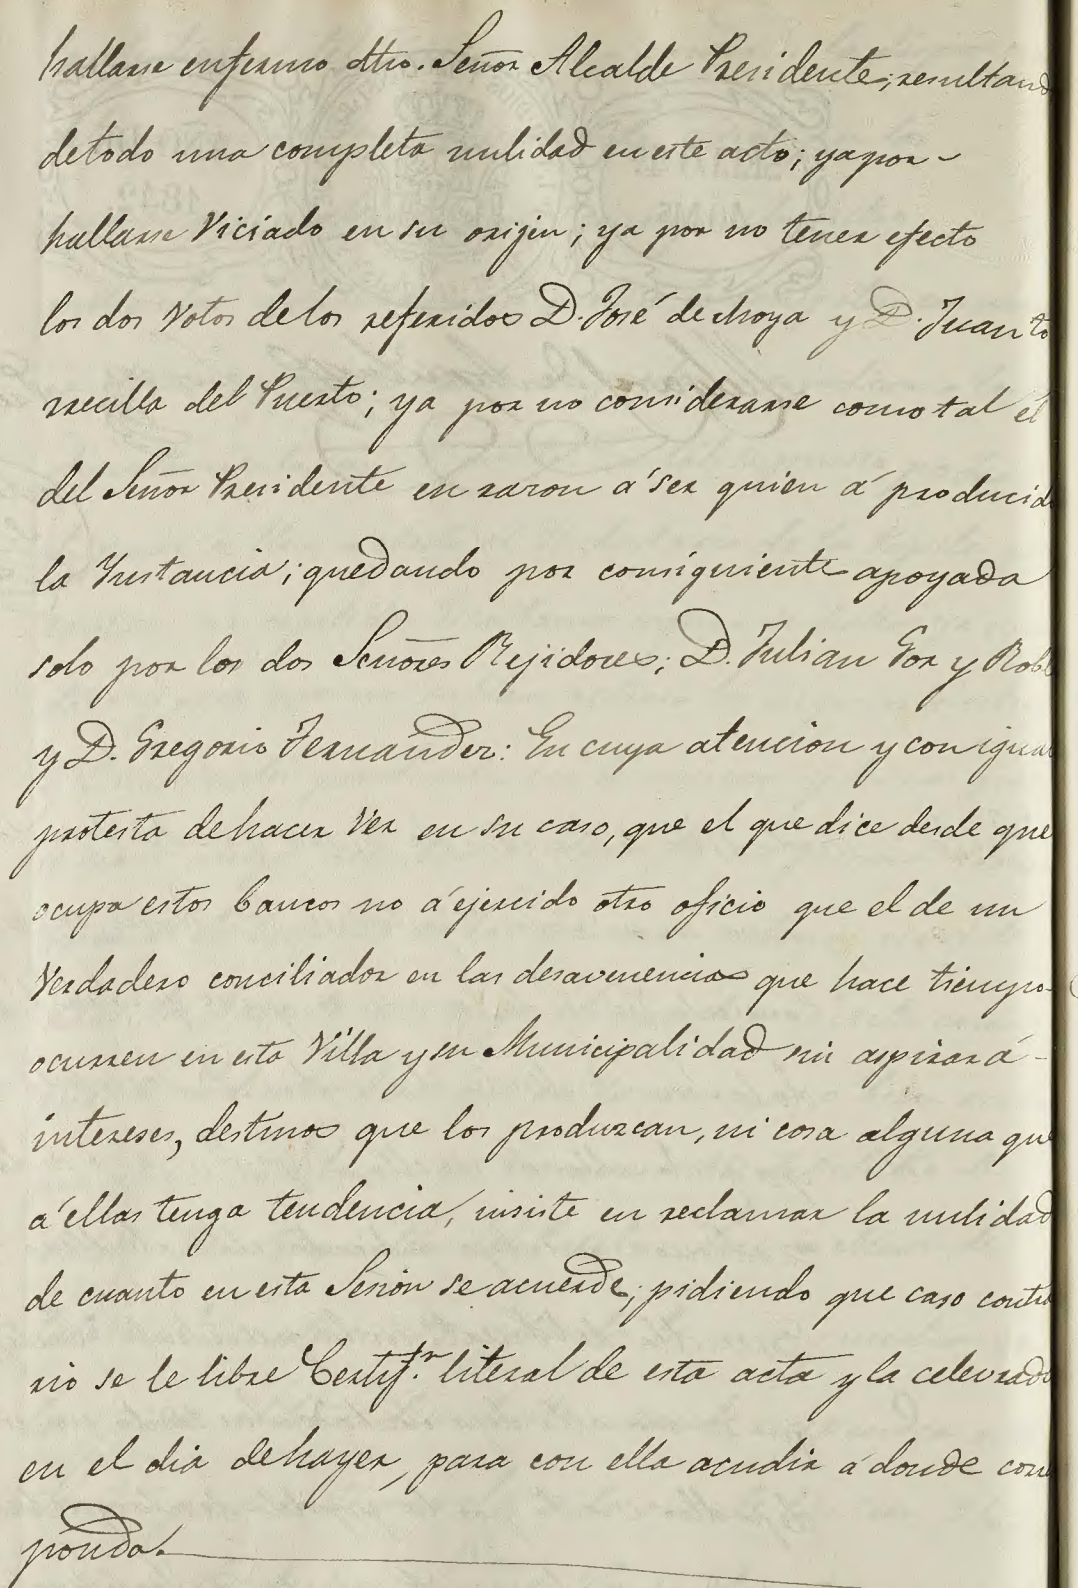 hallarse enfermo dho. Señor Alcalde Presidente; resultand
de todo una completa nulidad en este acto; ya por -
hallarse Viciado en su orijen; ya por no tener efecto
los dos Votos de los referidos D. José de Moya y D. Juan to
rrecilla del Puerto; ya por no considerarse como tal el
del Señor Presidente en razon á ser quien á producid
la Instancia; quedando por consiguiente apoyada
solo por los dos Señores Rejidores; D. Julian Gor y Robl
y D. Gregorio Fernandez: En cuya atencion y con igual
protesta de hacer Ver en su caso, que el que dice desde que
ocupa estos bancos no á ejercido otro oficio que el de un
Verdadero conciliador en las desavenencias que hace tiempo
ocurren en esta Villa y su Municipalidad sin aspirar á -
intereses, destinos que los produzcan, ni cosa alguna que
á ellas tenga tendencia, insiste en reclamar la nulidad
de cuanto en esta Sesion se acuerde; pidiendo que caso contra
rio se le libre Certif.n literal de esta acta y la celevrada
en el dia de hayer, para con ella acudir á donde corres
ponda.